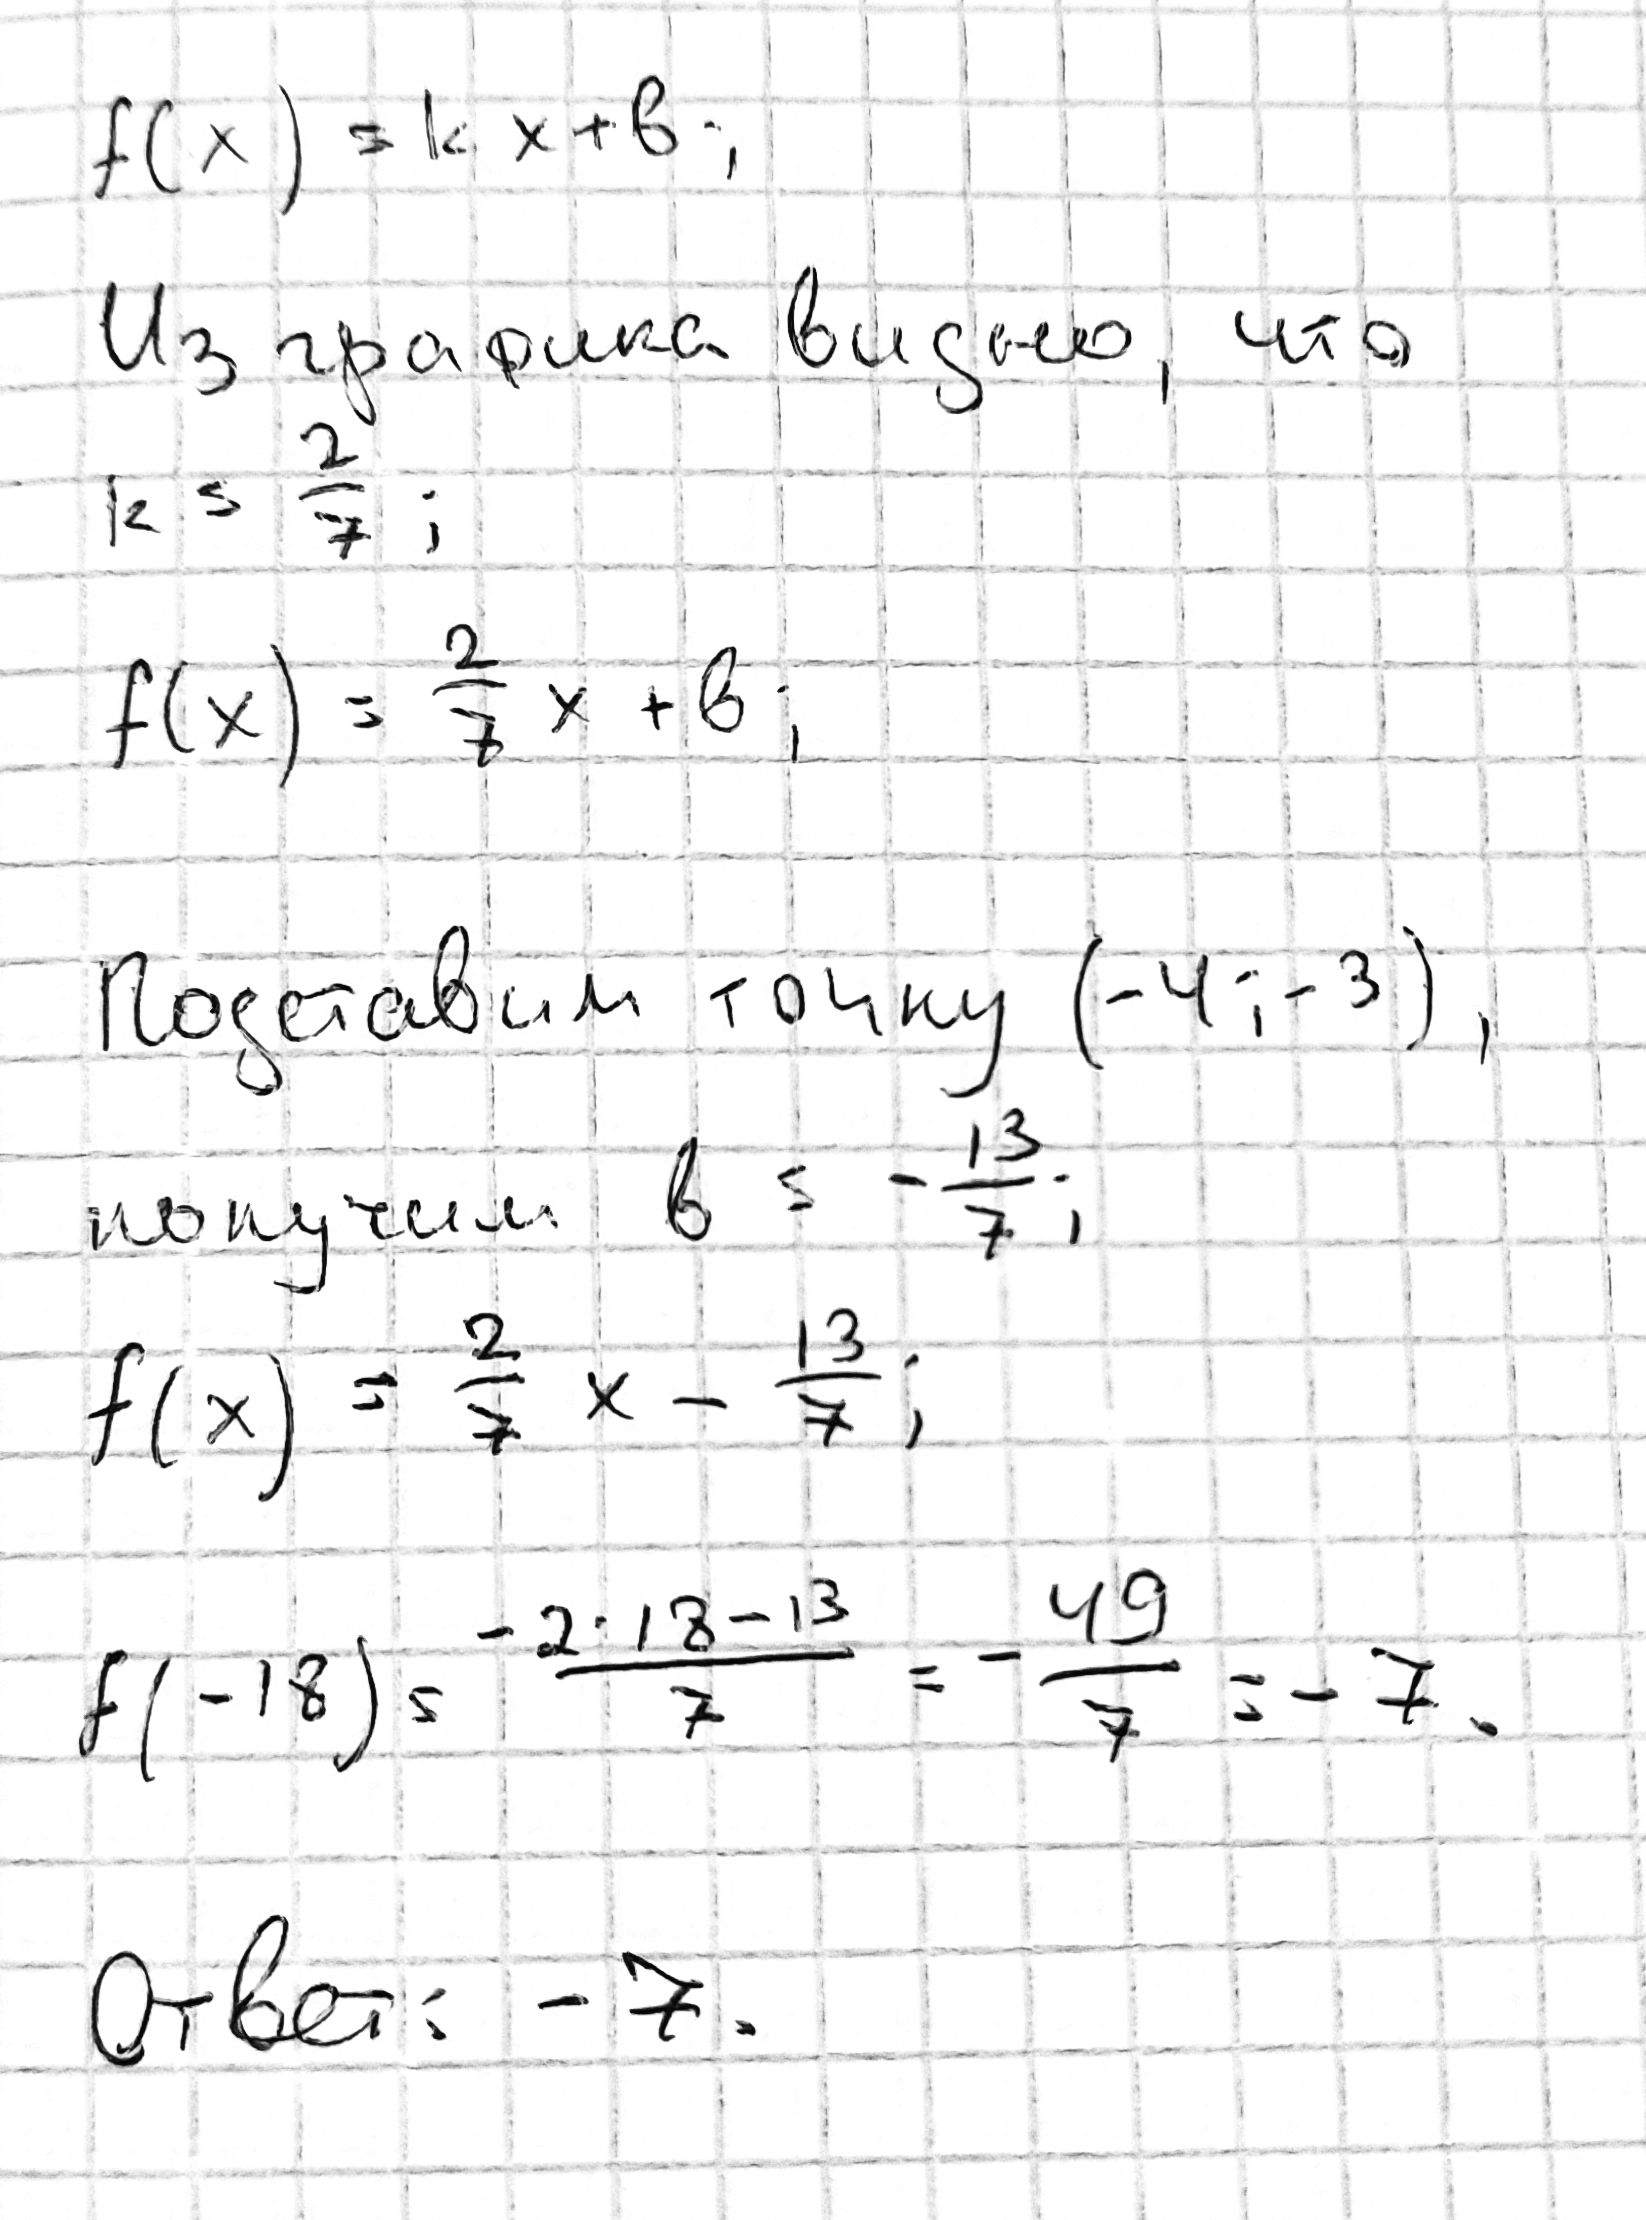 f(x) = kx+b;
Из графика видно, что
k = 2/7;
f(x) = 2/7 x + b;
Подставим точку (-4;-3),
получим b = -13/7;
f(x) = 2/7 x - 13/7;
f(-18) = (-2·18-13)/7 = -49/7 = -7.
Ответ: -7.